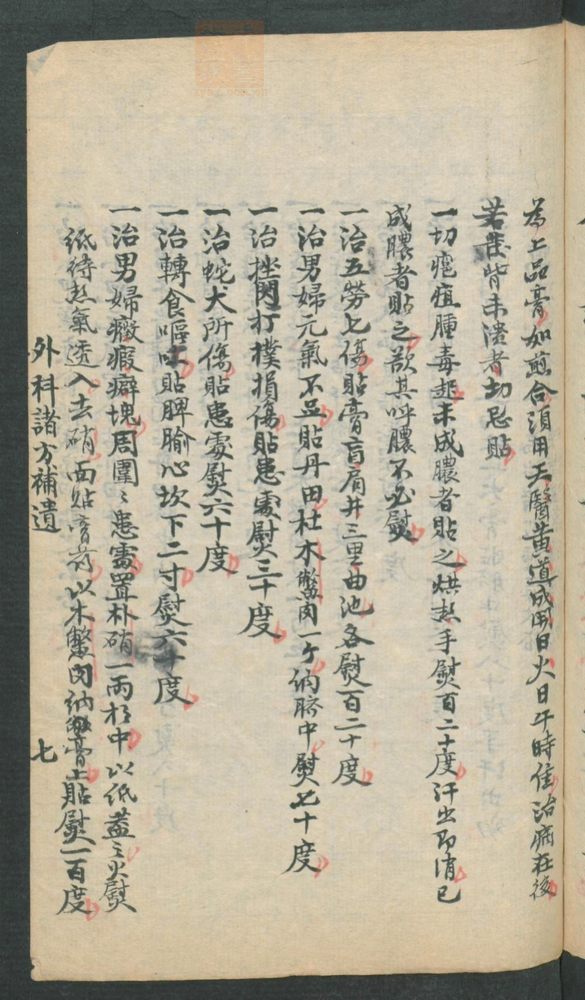 為上品膏如煎合須用天醫黃道成開日火日午時佳治病在後
若發背未潰者切忌貼
一切瘡疽腫毒起未成膿者貼之烘熱手熨百二十度汗出即消已
成膿者貼之欲其呼膿不必熨
一治五勞七傷貼膏肓肩井三里曲池各熨百二十度
一治男婦元氣不足貼丹田杜木鱉肉一个納臍中熨七十度
一治挫閃打撲損傷貼患處熨三十度
一治蛇犬所傷貼患處熨六十度
一治轉食嘔吐貼脾腧心坎下二寸熨六十度
一治男婦癥瘕癖塊周圍〻患處置朴硝一兩於中以紙蓋之火熨
紙待熱氣透入去硝面貼膏前以木鱉肉納膏上貼熨一百度
外科諸方補遺
七